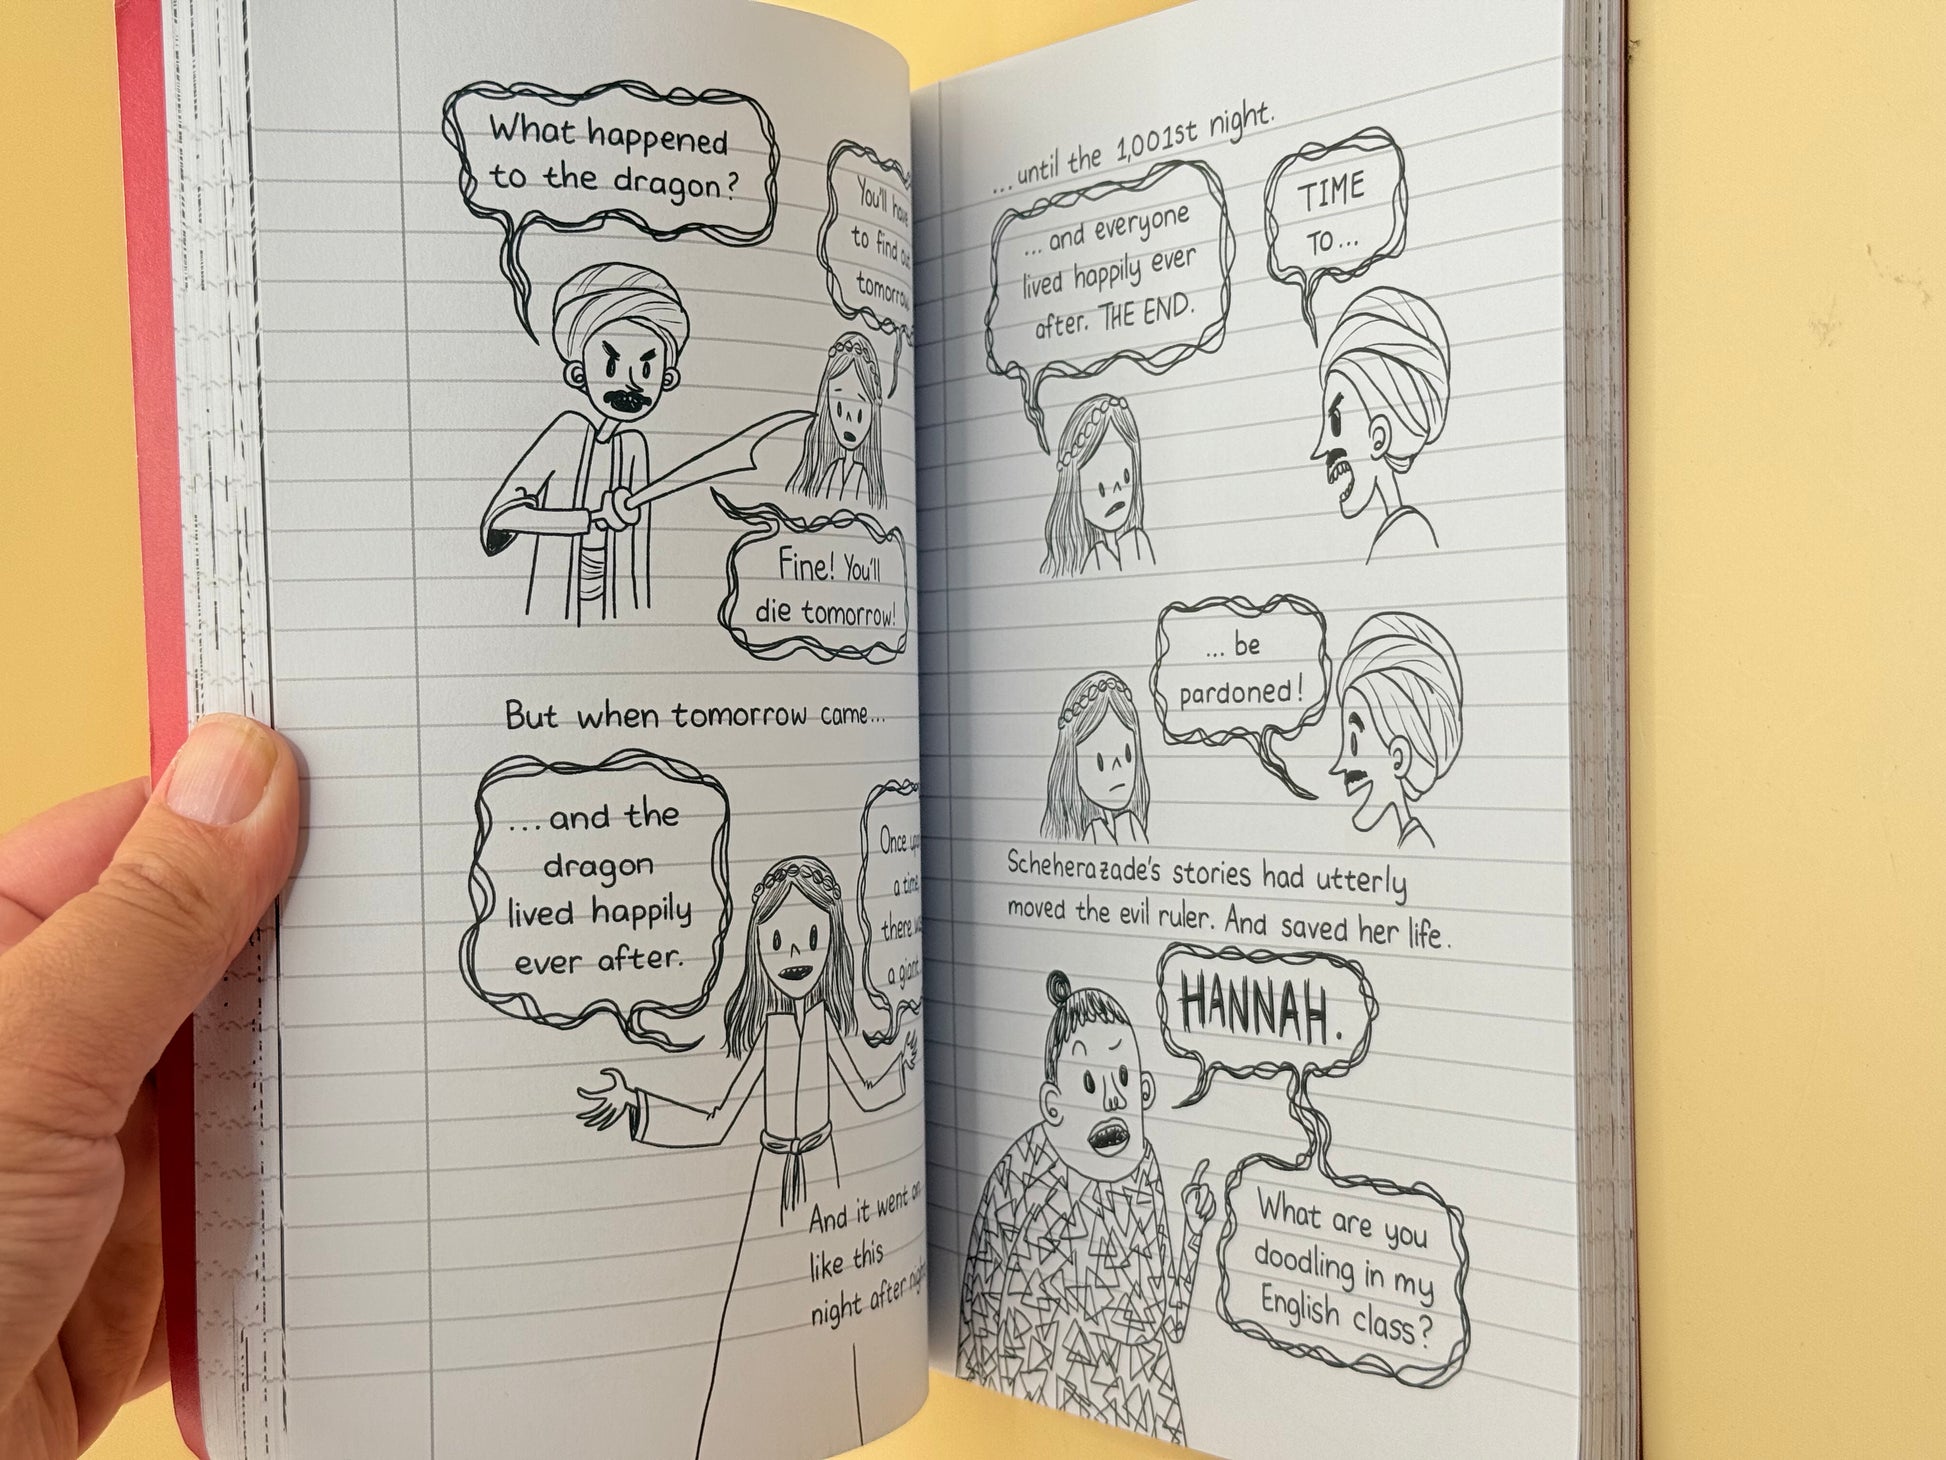 What happened
to the dragon?
You'll have
to find out
tomorrow
Fine! You'll
die tomorrow!
But when tomorrow came...
...and the
dragon
lived happily
ever after.
Once upon
a time
there was
a giant
And it went on
like this
night after night
...until the 1,001st night.
... and everyone
lived happily ever
after. THE END.
TIME
TO...
... be
pardoned!
Scheherazade's stories had utterly
moved the evil ruler. And saved her life.
HANNAH.
What are you
doodling in my
English class?